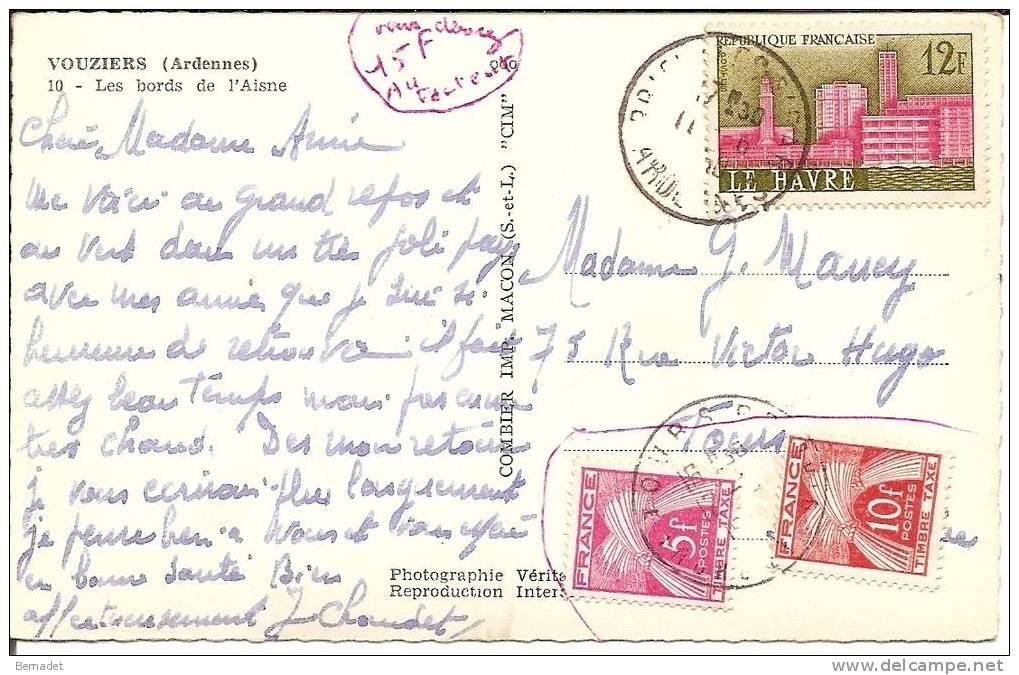 VOUZIERS (Ardennes)
10 - Les bords de l'Aisne
vous devez
15 F
Au facteur
RÉPUBLIQUE FRANÇAISE
12F
LE HAVRE
Chère Madame Amie
Me voici au grand repos et
au vert dans un très joli pays
avec mes amis que je suis si
heureuse de retrouver il fait
assez beau temps mais pas encore
très chaud. Dès mon retour
je vous écrirai plus longuement
je pense bien à vous et vous espère
en bonne santé Bien
affectueusement J Chaudet
COMBIER IMP. MACON (S.-et-L.) "CIM"
Madame G. Mauny
75 Rue Victor Hugo
Tours
Photographie Vérita
Reproduction Inter
FRANCE
5f
POSTES
TIMBRE TAXE
FRANCE
10f
POSTES
TIMBRE TAXE
TOURS
Bernadet
http://www.delcampe.net